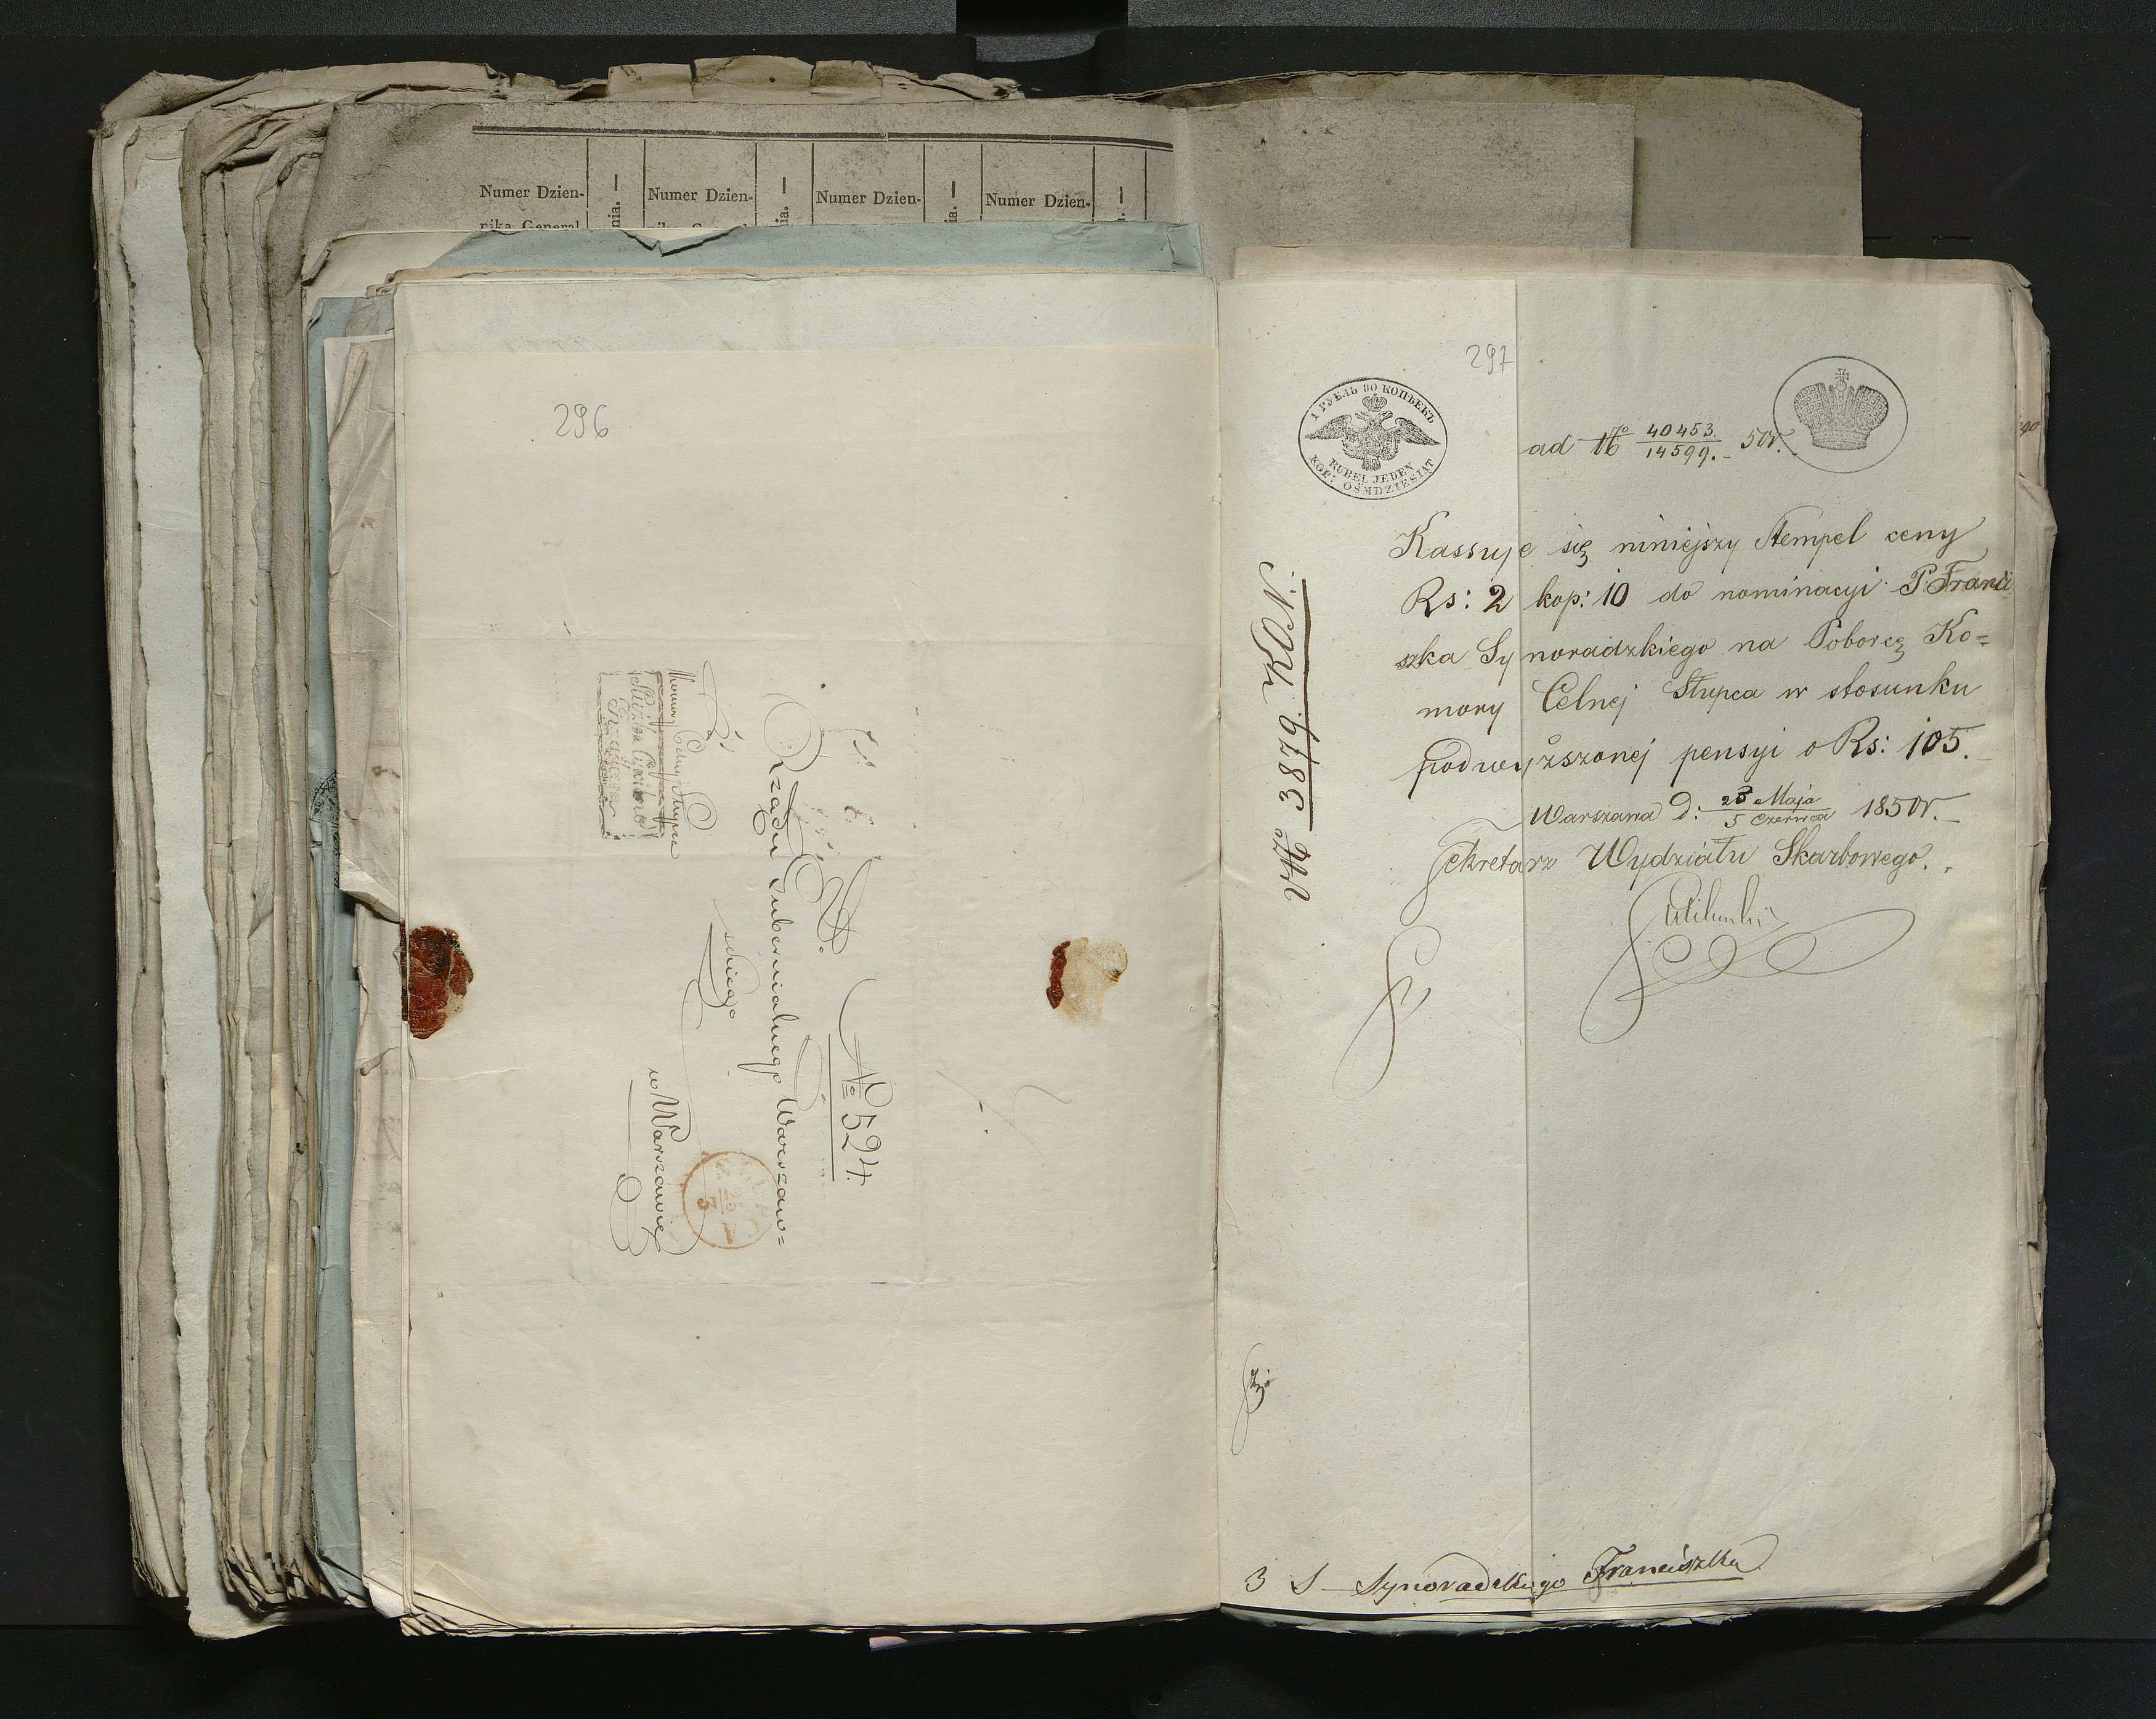 Numer Dzien- nia. Numer Dzien- ia. Numer Dzien- ia. Numer Dzien-
nika General
296
No 524.
Rządu Gubernialnego Warszaw=
skiego
w Warszawie
Komory Celnej Słupca
Służba Cywilna
25
3
297
1 РУБЛЬ 80 КОПѢЕКЪ
RUBEL JEDEN
KOP: OŚMDZIESIĄT
ad No 40453./14599. 50r.
Kassuje się niniejszy Stempel ceny
Rs: 2 kop: 10 do nominacyi P Franci
szka Synoradzkiego na Poborcę Ko=
mory Celnej Słupca w stosunku
podwyższonej pensyi o Rs: 105.
Warszawa D: Maja/5 Czerwca 1850r.
Sekretarz Wydziału Skarbowego.
3879
3 S Synoradzkiego Franciszka